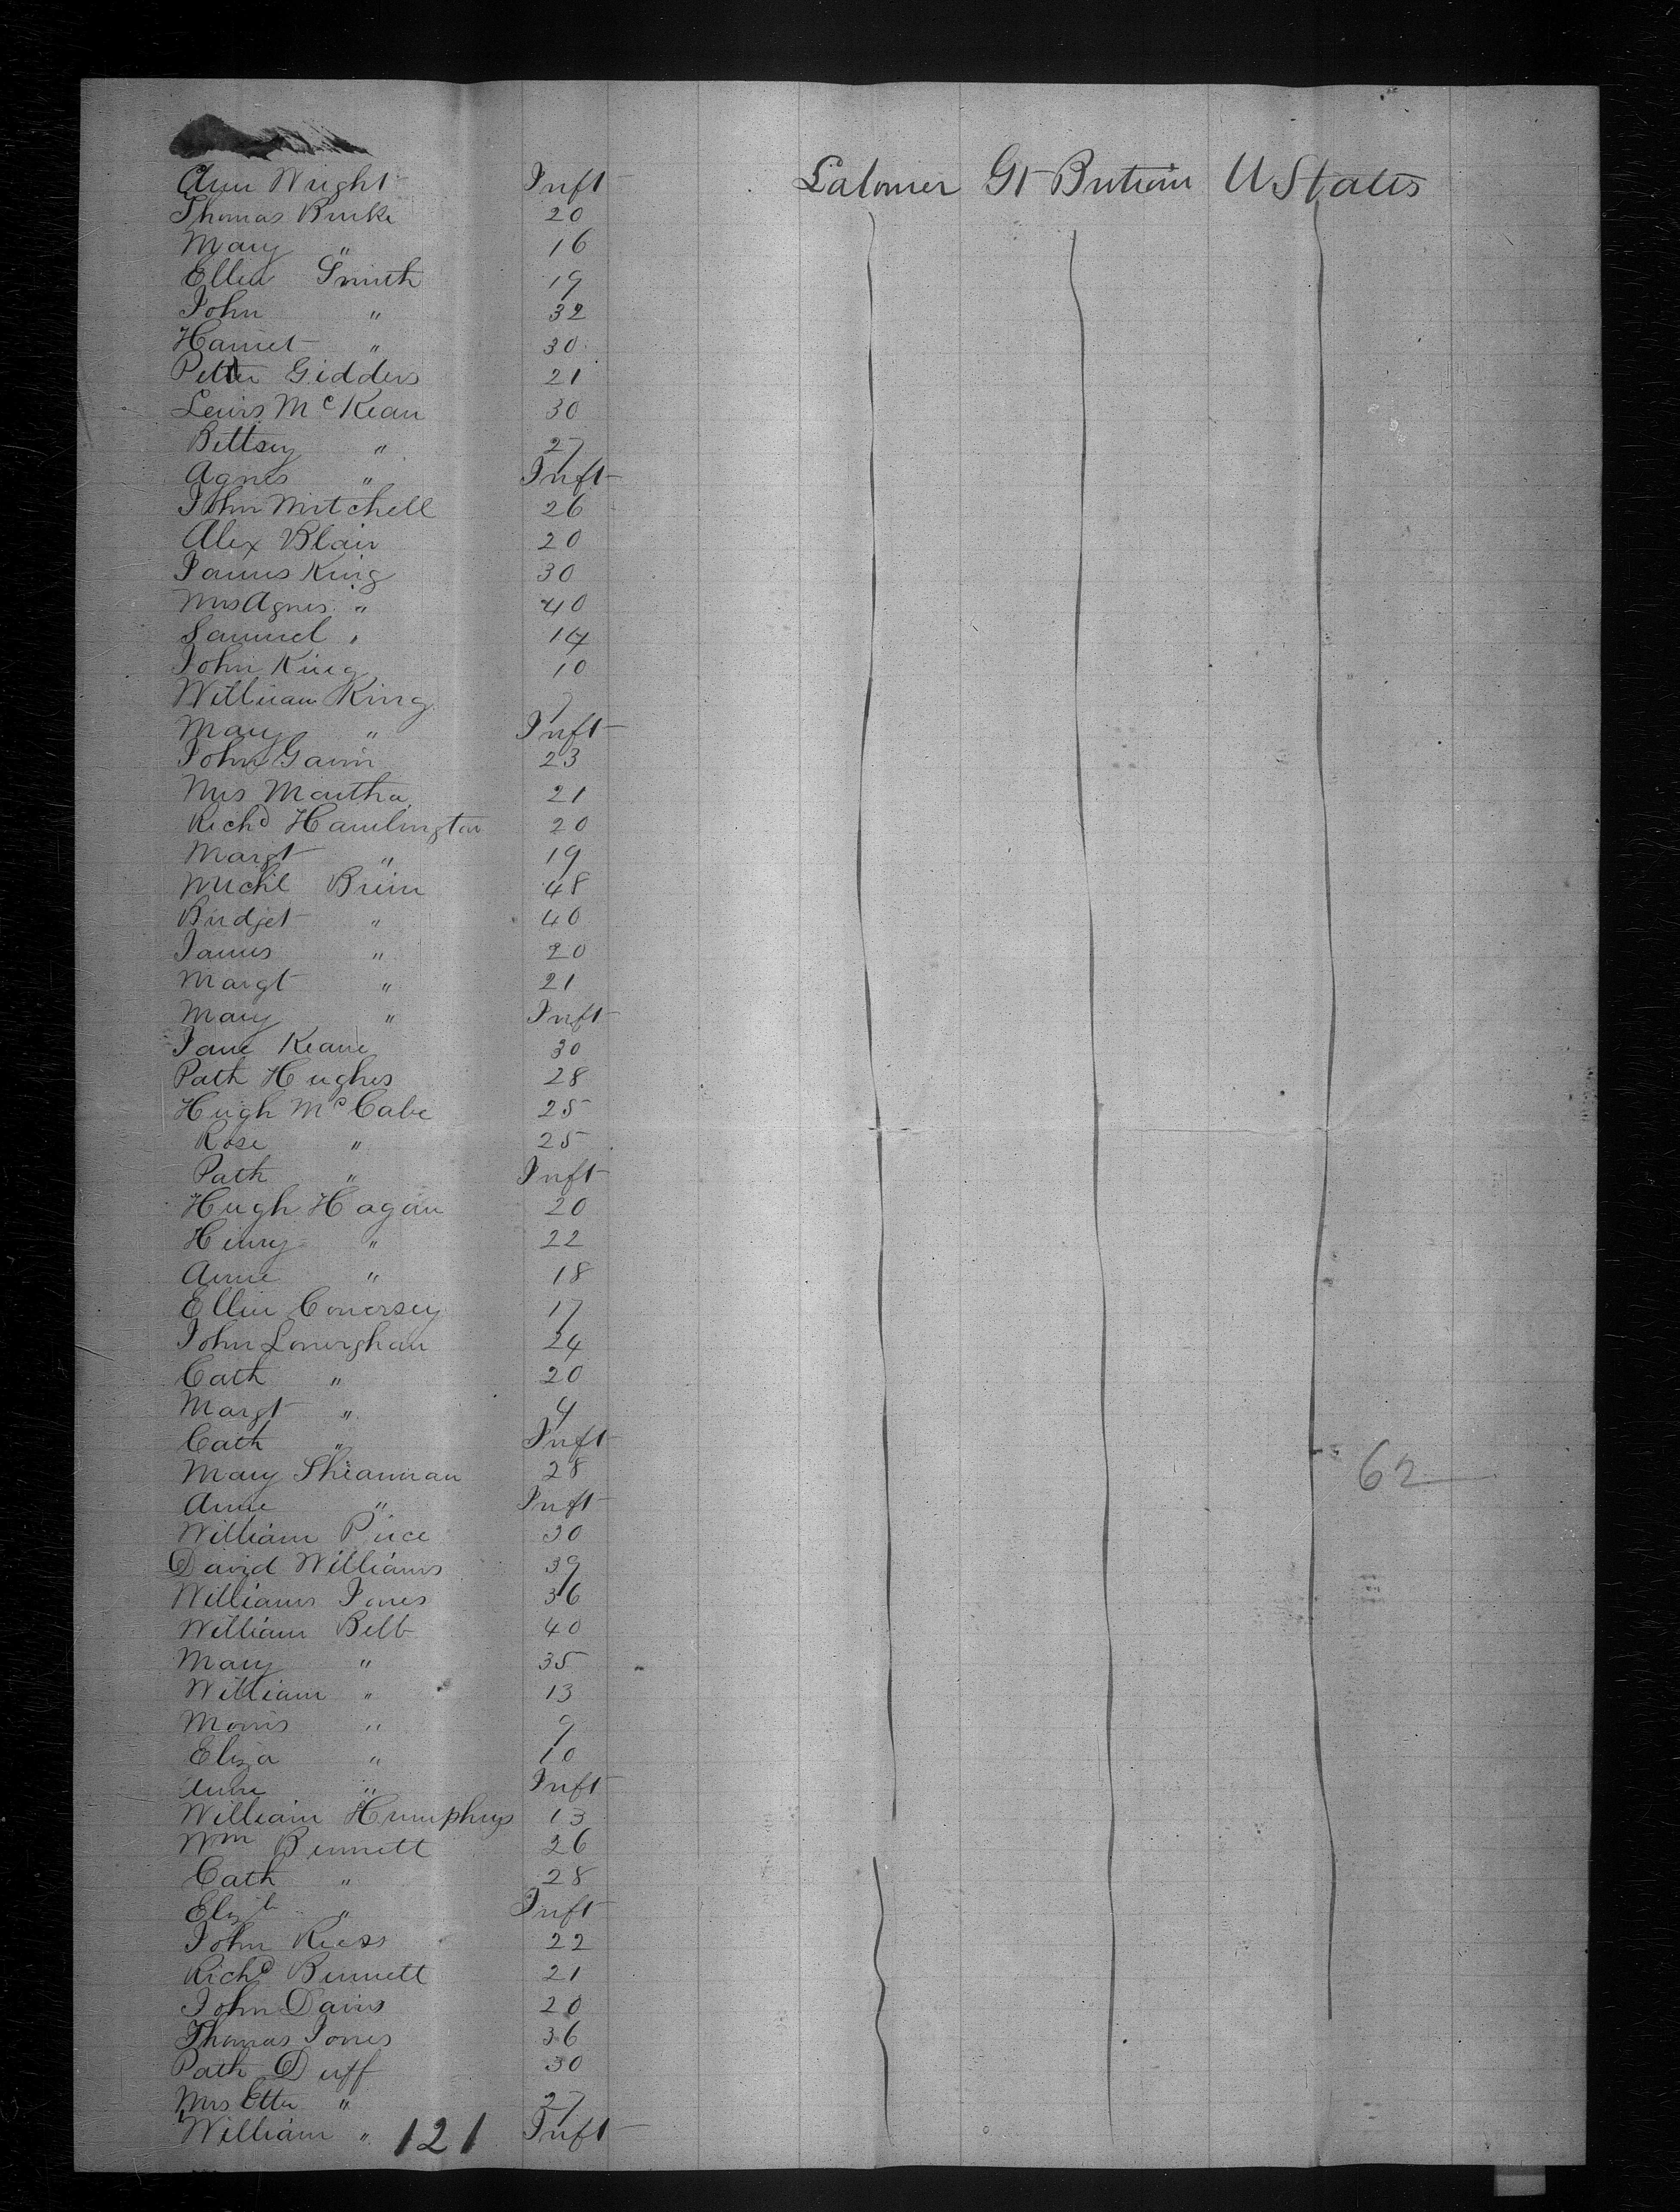 Ann Wright Inft Labourer Gt Britain U States
Thomas Burke 20
Mary " 16
Ellen Smith 19
John " 32
Harriet " 30
Peter Gidders 21
Lewis McKean 30
Bettsey " 27
Agnes " Inft
John Mitchell 26
Alex Blair 20
James King 30
Mrs Agnes " 40
Samuel " 14
John King 10
William King 7
Mary " Inft
John Gavin 23
Mrs Martha 21
Richd Hamlington 20
Margt " 19
Michl Brien 48
Bridjet " 40
James " 20
Margt " 21
Mary " Inft
Jane Keane 30
Path Hughes 28
Hugh McCabe 25
Rose " 25
Path " Inft
Hugh Hagan 20
Henry " 22
Anne " 18
Ellen Conersey 17
John Lonerghan 24
Cath " 20
Margt " 4
Cath " Inft
Mary Sheannan 28 62
Anne " Inft
William Price 30
David Williams 39
Williams Jones 36
William Belt 40
Mary " 35
William " 13
Morris " 9
Eliza " 10
Anne " Inft
William Humphreys 13
Wm Bennett 26
Cath " 28
Elizb " Inft
John Reess 22
Richd Bennett 21
John Davis 20
Thomas Jones 36
Path Duff 30
Mrs Etta " 27
William " 121 Inft